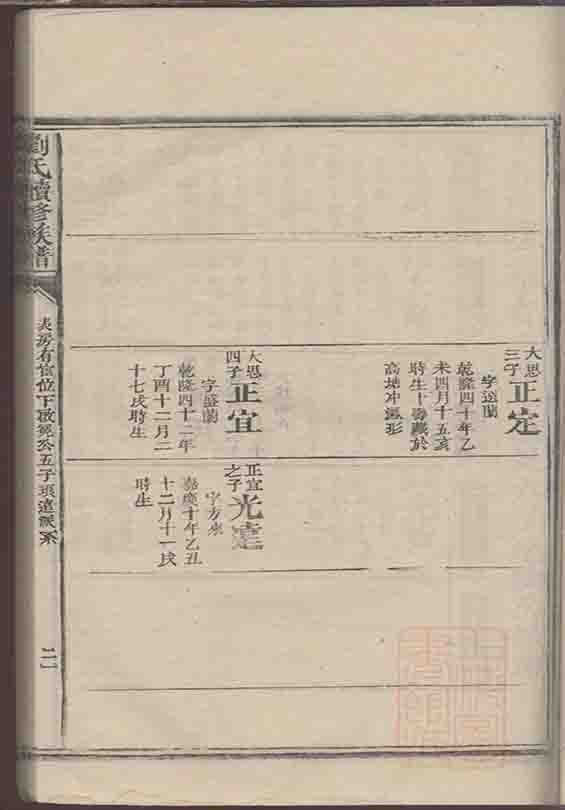 大思三子 正定
字運蘭
乾隆四十年乙
未四月十五亥
時生十壽歲於
高塘冲瓢形
大思四子 正宜
字盛蘭
乾隆四十二年
丁酉十二月二
十七戌時生
正宜之子 光遠
字方來
嘉慶十年乙丑
十二月十一戌
時生
劉氏續修族譜
表房有宦位下啟 公五子 遠派系
二